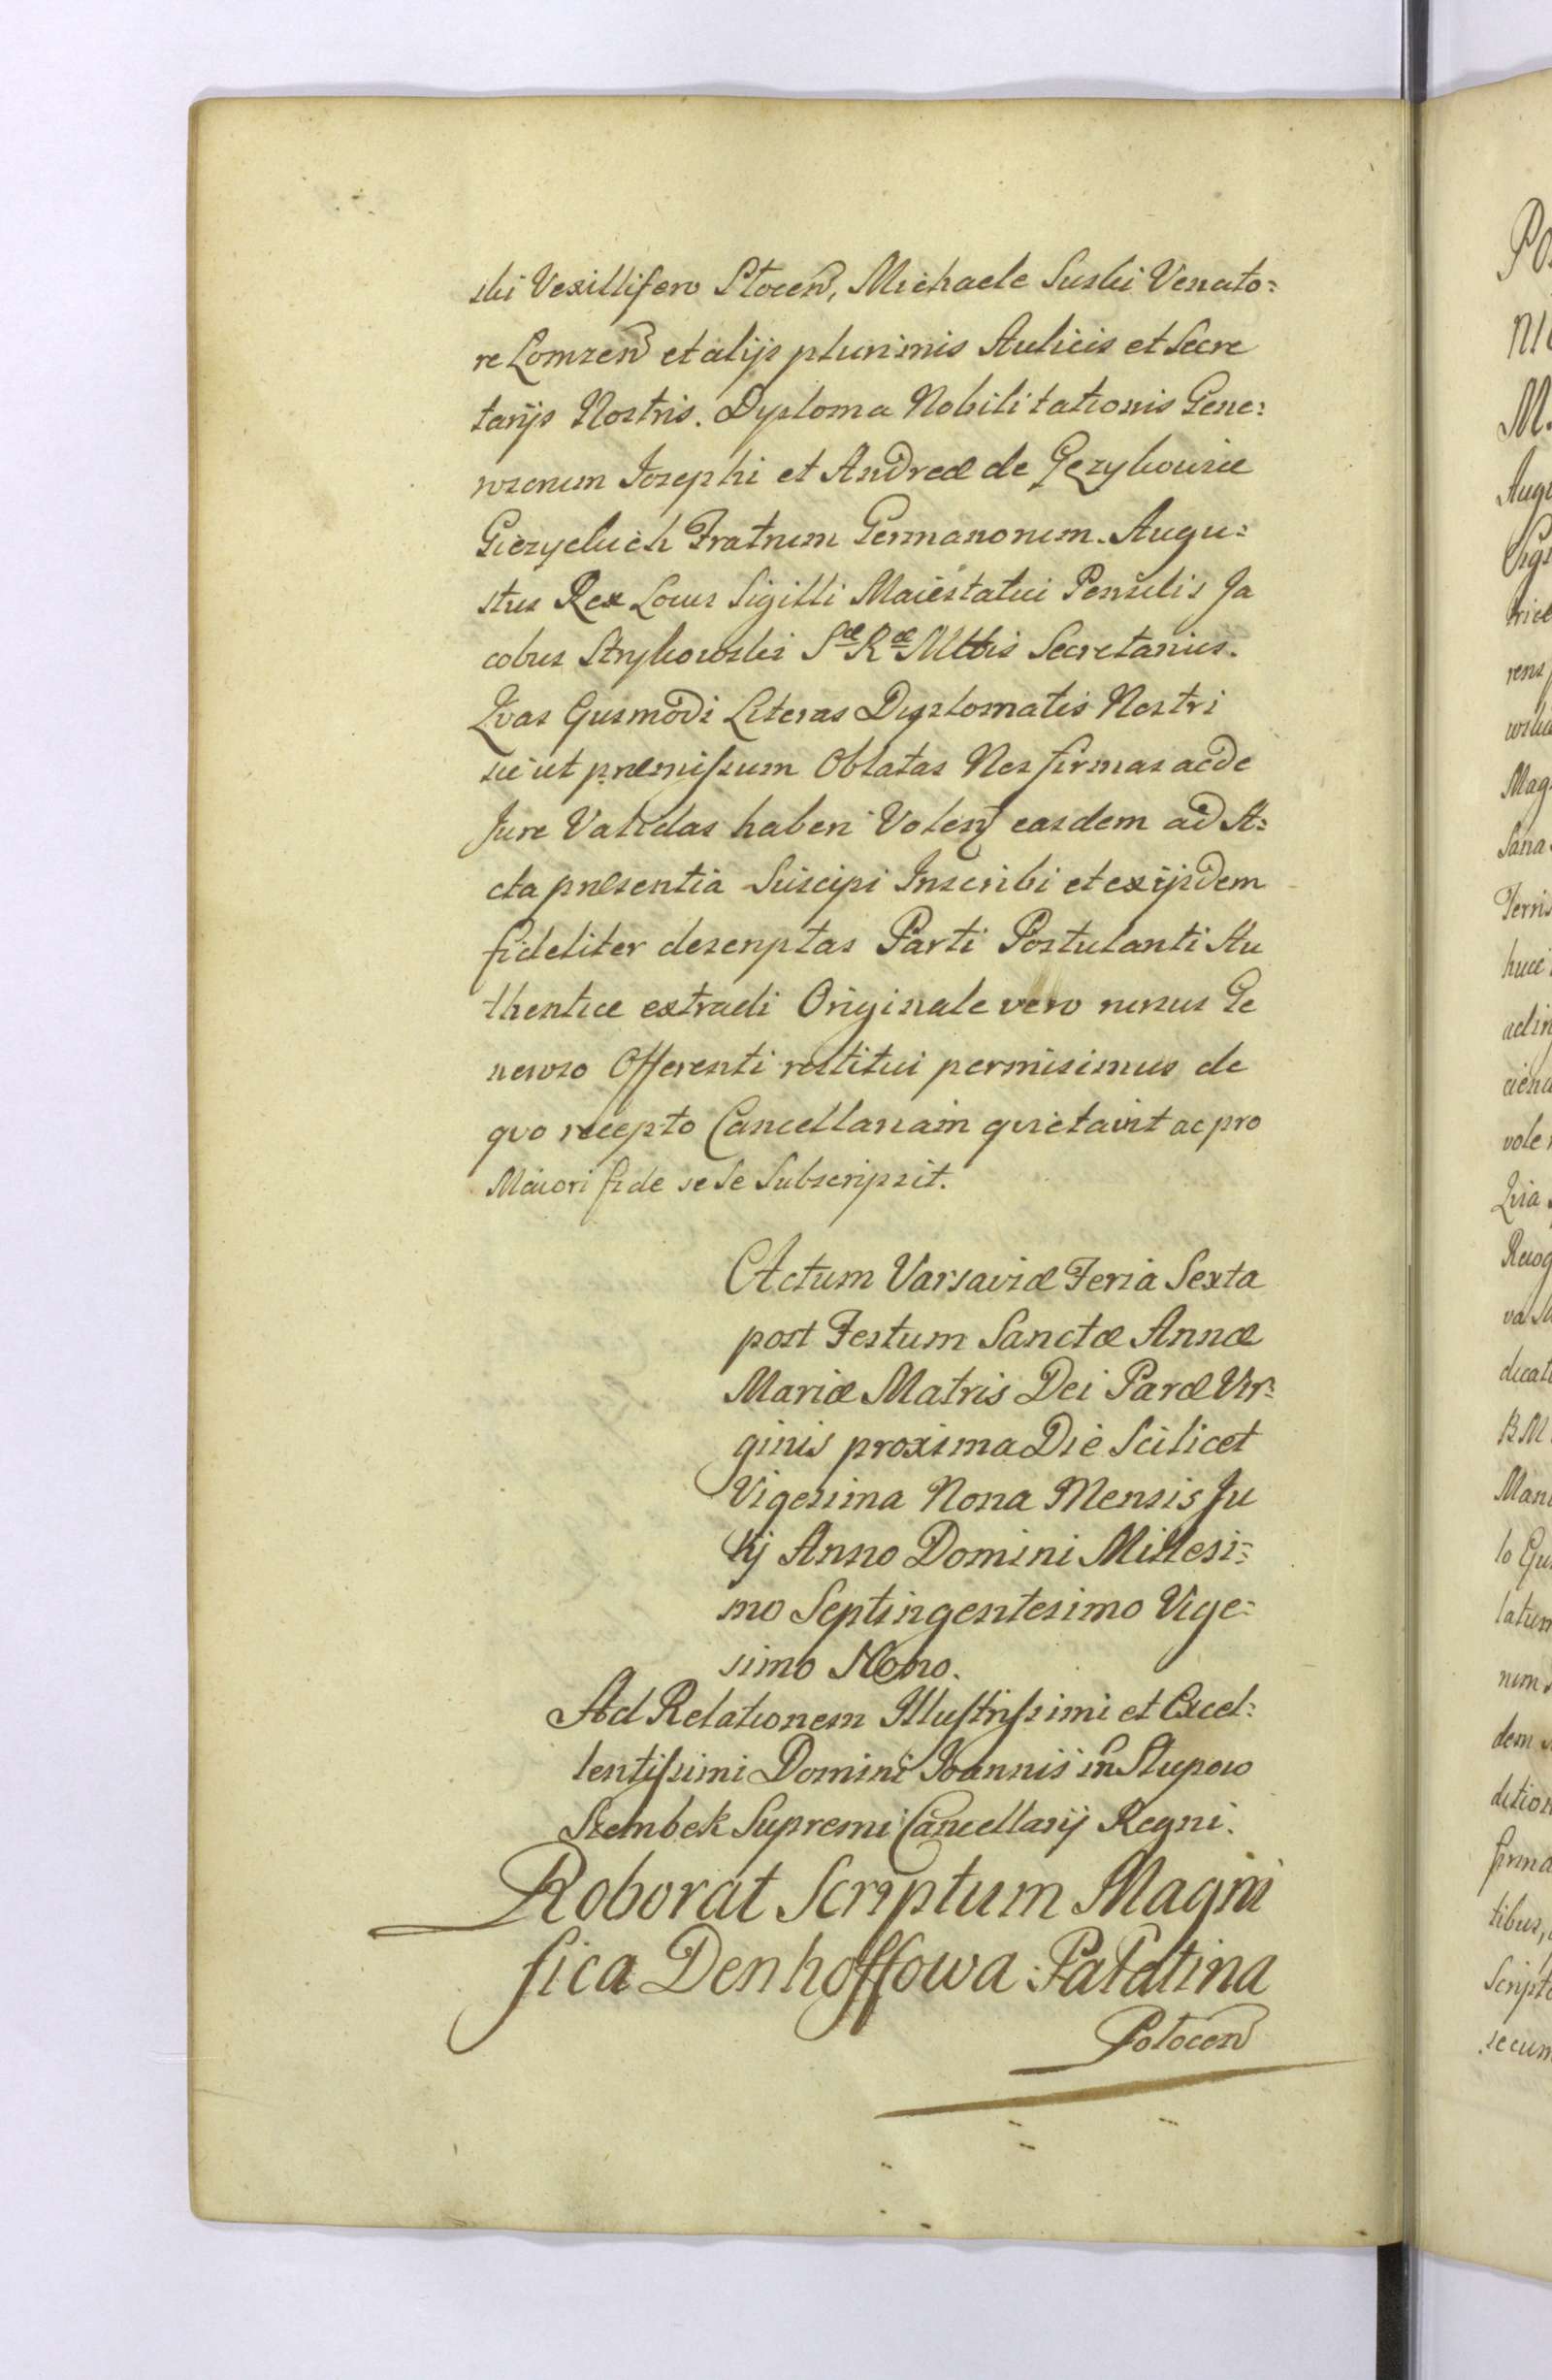 ski Vexillifero Plocen, Michaele Suski Venato=
re Lomzen et alijs plurimis Aulicis et Secre
tarijs Nostris. Dyploma Nobilitationis Gene=
rosorum Josephi et Andreæ de
Giezyckich Fratrum Germanorum. Augu=
stus Rex Locus Sigilli Maiestatici Pensilis Ja
cobus Strykowski Sæ Ræ Mttis Secretarius.
Qvas Gusmodi Literas Dyplomatis Nostri
sic ut præmissum Oblatas Nos firmas ac de
Jure Validas haberi Volen easdem ad A=
cta præsentia Suscipi Inscribi et ex ijsdem
fideliter descriptas Parti Postulanti Au
thentice extradi Originale vero rursus Ge
neroso Offerenti restitui permisimus de
qvo recepto Cancellariam qvietavit ac pro
Maiori fide se Se Subscripsit.
Actum Varsaviæ Feria Sexta
post Festum Sanctæ Annæ
Mariæ Matris Dei Paræ Vir=
ginis proxima Die Scilicet
Vigesima Nona Mensis Ju
lij Anno Domini Millesi=
mo Septingentesimo Vige=
simo Nono.
Ad Relationem Illustrissimi et Excel=
lentissimi Domini Joannis in Slupow
Szembek Supremi Cancellarij Regni.
Roborat Scriptum Magni
fica Denhoffowa Palatina
Polocen